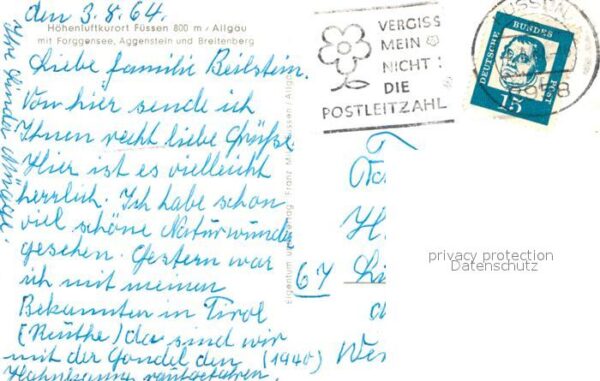 den 3.8.64.
Höhenluftkurort Füssen 800 m / Allgäu
mit Forggensee, Aggenstein und Breitenberg
Liebe familie Beilstein.
Von hier sende ich
Ihnen recht liebe Grüße.
Hier ist es vielleicht
herrlich. Ich habe schon
viel schöne Naturwunder
gesehen. Gestern war
ich mit meinen
Bekannten in Tirol
(Reuthe) da sind wir
mit der Gondel den (1940)
Hahnkamm raufgefahren.
Ihre
Eigentum u. Verlag Franz Füssen / Allgäu
VERGISS
MEIN
NICHT:
DIE
POSTLEITZAHL
FÜSSEN
8958
DEUTSCHE BUNDES POST
15
67
H
We
privacy protection
Datenschutz